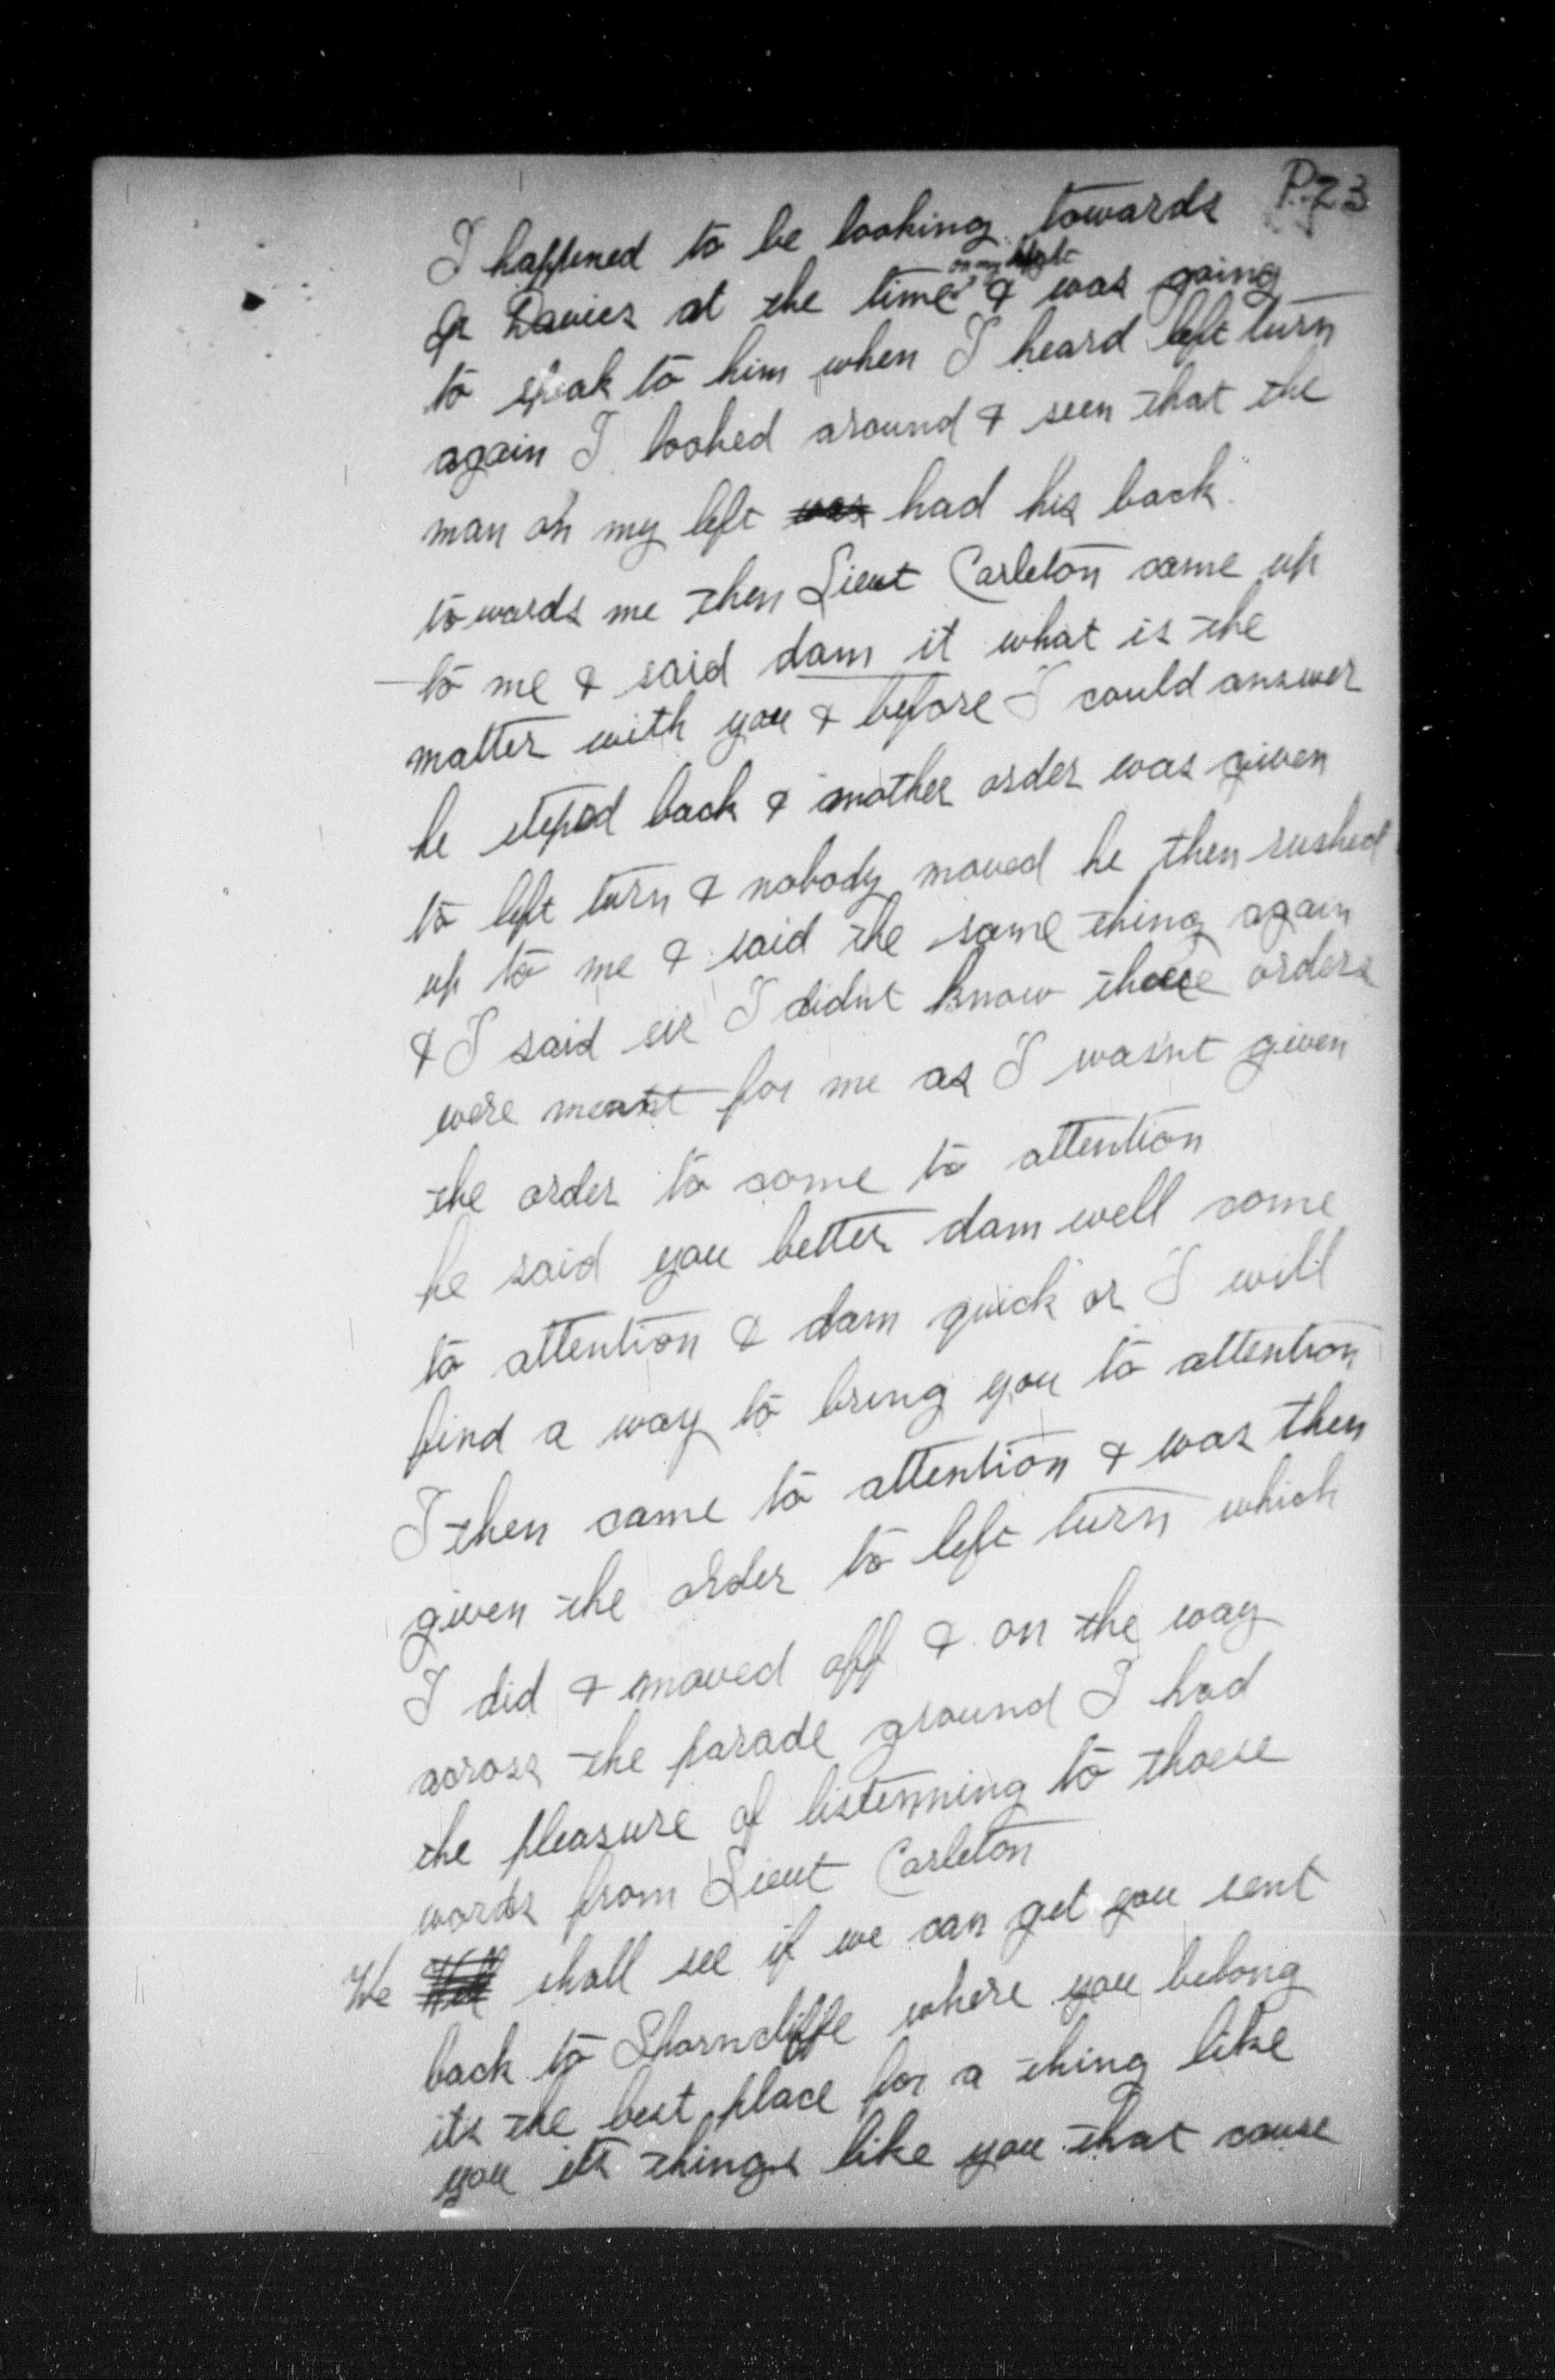 P. 23
I happened to be looking towards
Gr Davies at the time on my right & was going
to speak to him when I heard left turn
again I looked around & seen that the
man on my left was had his back
towards me then Lieut Carleton came up
to me & said dam it what is the
matter with you & before I could answer
he steped back & another order was given
to left turn & nobody moved he then rushed
up to me & said the same thing again
& I said sir I didnt know those orders
were meant for me as I wasnt given
the order to come to attention
he said you better dam well come
to attention & dam quick or I will
find a way to bring you to attention
I then came to attention & was then
given the order to left turn which
I did & moved off & on the way
across the parade ground I had
the pleasure of listenning to those
words from Lieut Carleton
We shall see if we can get you sent
back to Shorncliffe where you belong
its the best place for a thing like
you its things like you that cause